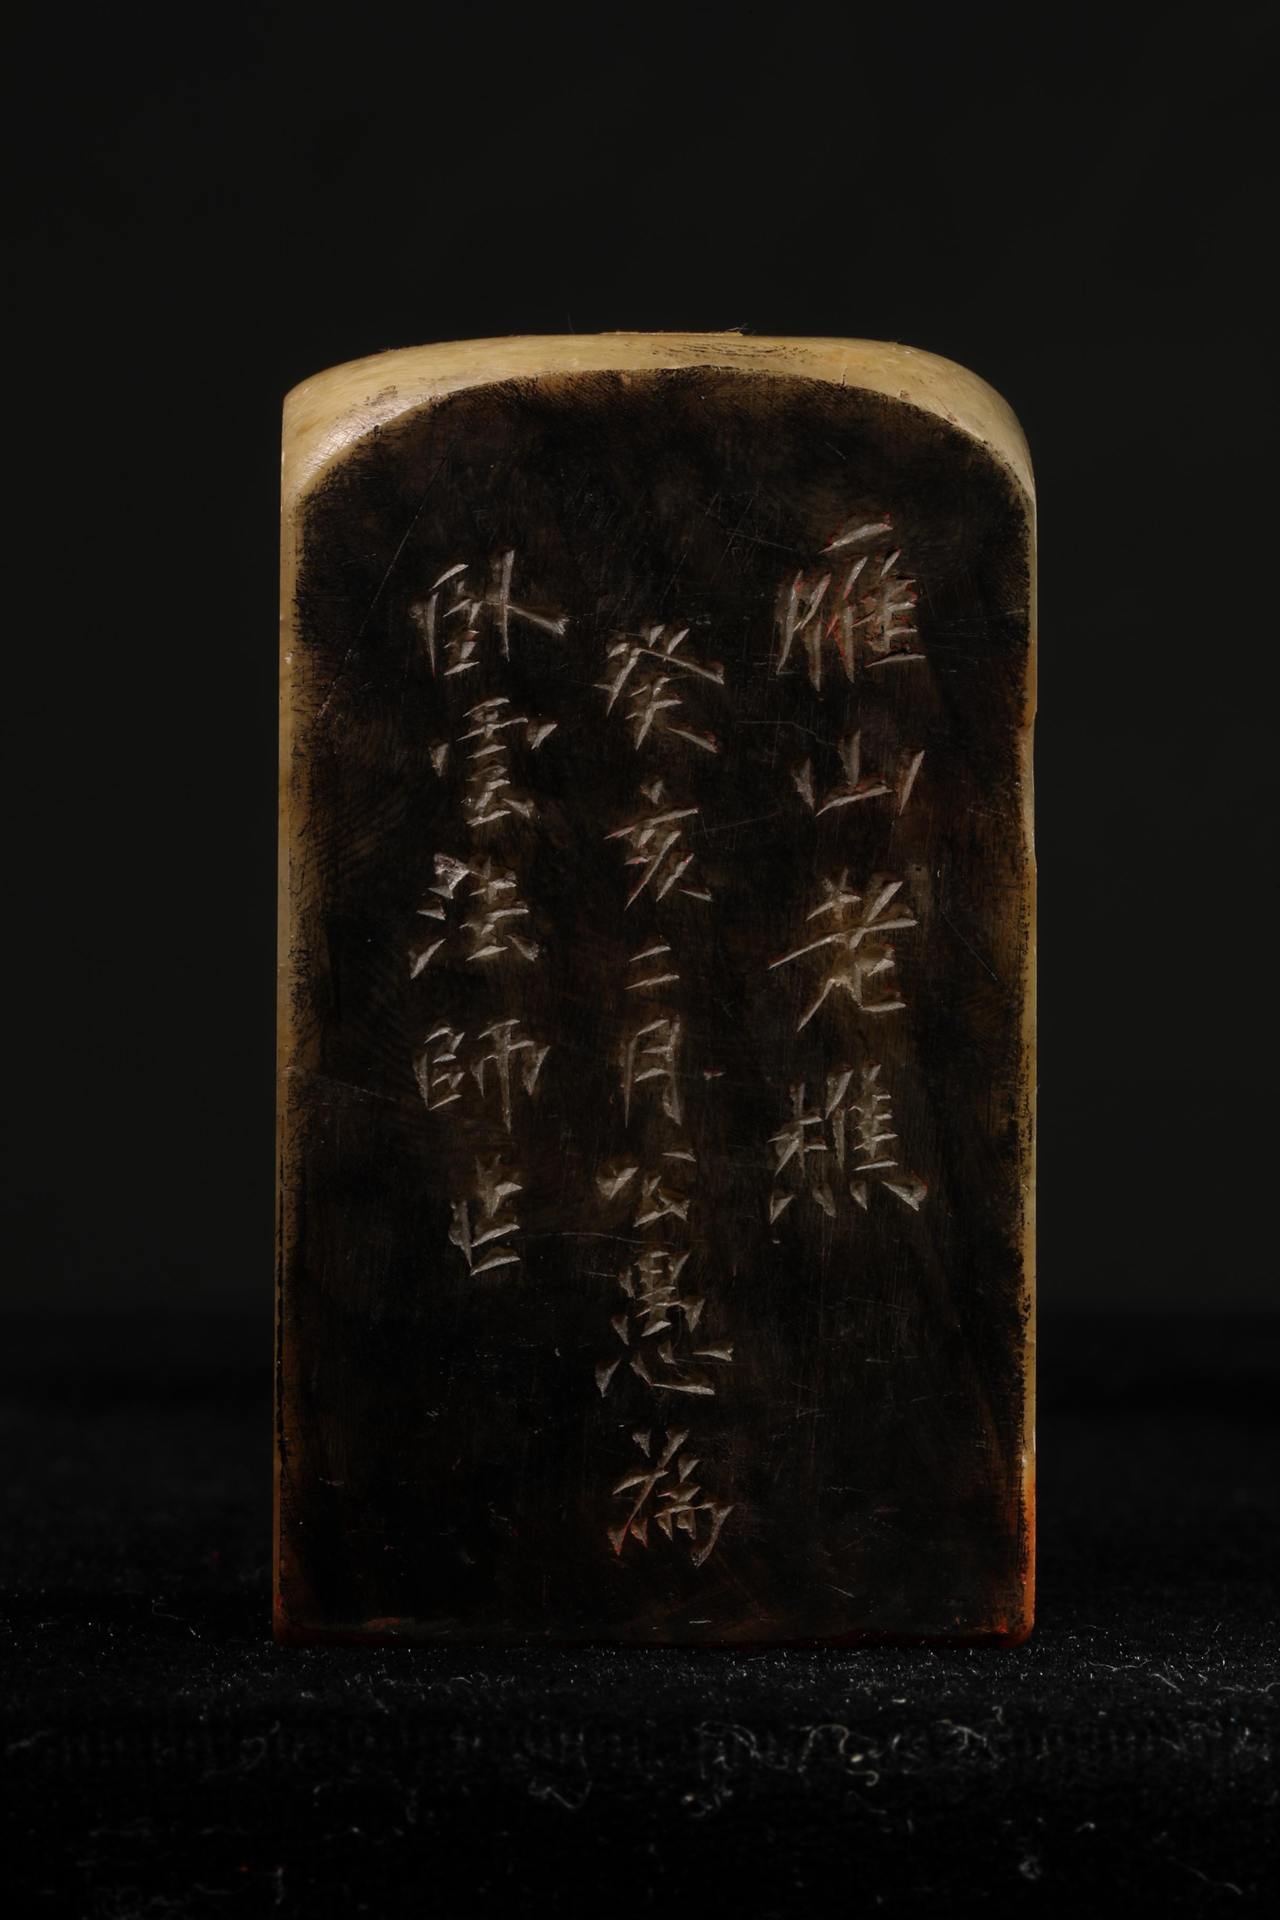 雁山老樵
癸亥二月公愚為
臥雲法師